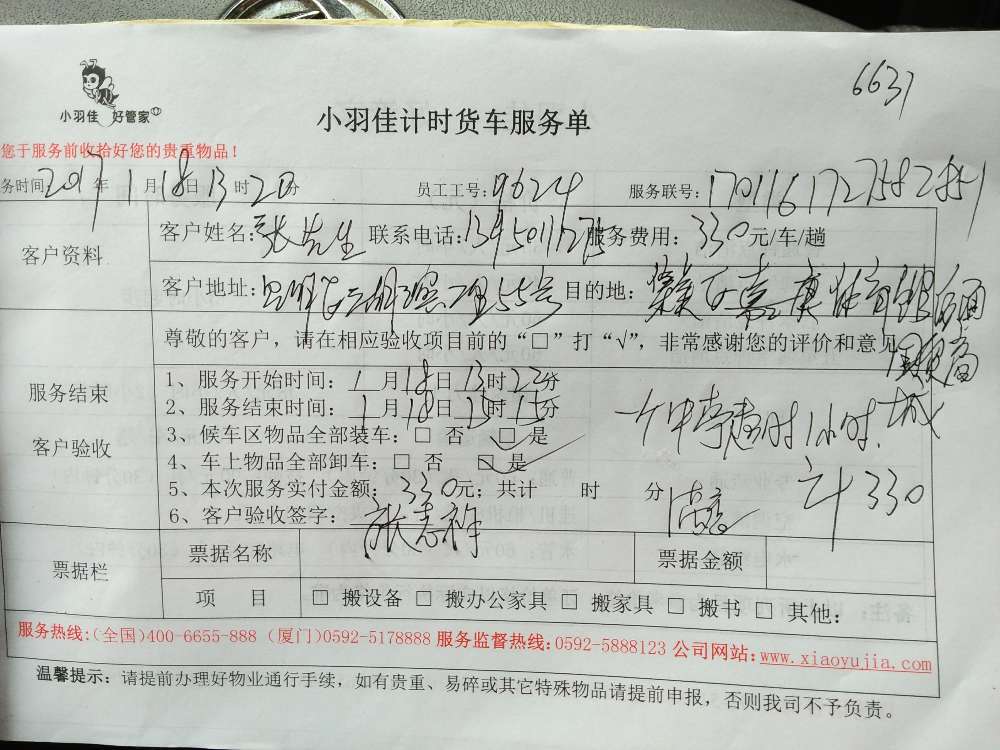 6631
小羽佳 好管家
小羽佳计时货车服务单
您于服务前收拾好您的贵重物品！
务时间: 2017年 1月18日 13时20分 员工工号: 9624 服务联号: 170116172758
客户资料 客户姓名: 张先生 联系电话: 服务费用: 330元/车/趟
客户地址: 55号 目的地:
尊敬的客户，请在相应验收项目前的“□”打“√”，非常感谢您的评价和意见
服务结束
客户验收
1、服务开始时间: 1月18日 13时22分
2、服务结束时间: 1月18日 15时15分
3、候车区物品全部装车: □ 否 □ 是
4、车上物品全部卸车: □ 否 □ 是
5、本次服务实付金额: 330元; 共计 时 分
6、客户验收签字: 张志祥
超时1小时.
计330
票据栏 票据名称 票据金额
项 目 □ 搬设备 □ 搬办公家具 □ 搬家具 □ 搬书 □ 其他:
服务热线:(全国)400-6655-888 (厦门)0592-5178888 服务监督热线: 0592-5888123 公司网站: www.xiaoyujia.com
温馨提示: 请提前办理好物业通行手续，如有贵重、易碎或其它特殊物品请提前申报，否则我司不予负责。